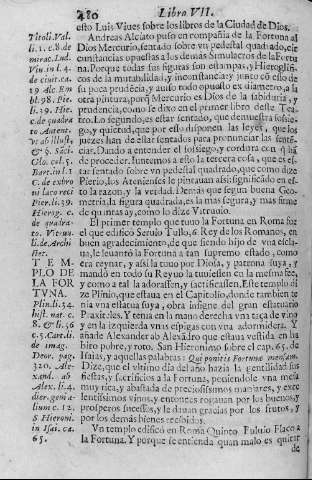 480 Libro VII.
esto Luis Viues sobre los libros de la Ciudad de Dios.
Andreas Alciato puso en compañia de la Fortuna al
Dios Mercurio, sentado sobre vn pedestal quadrado, cir
cunstancias opuestas a los demás Simulacros de la Fortu
na. Porque todas sus figuras son estampas, y Hieroglifi-
cos de la mutabilidad, y inconstancia: y junto cō esto de
su poca prudēcia, y auiso todo opuesto ex diametro, a la
otra pintura, porq̃ Mercurio es Dios de la sabiduria, y
prudencia, como se dixo en el primer libro deste Tea-
tro. Lo segundo, es estar sentado, que demuestra sossie-
go, y quietud, que por esto disponen las leyes, que los
juezes han de estar sentados para pronunciar las senten
ciar. Dando a entender el sossiego, y cordura con q̃ hā
de proceder. Iuntemos a esto la tercera cosa, que es es-
tar sentado sobre vn pedestal quadrado, que como dize
Pierio, los Atenienses lo pintauan assi: significando en es
to la razon, y la verdad. Demàs que segun buena Geo-
metria, la figura quadrada, es la mas segura, y mas firme
de quantas ay, como lo dize Vitruuio.
El primer templo que tuuo la Fortuna en Roma fue
el que edificò Seruio Tulio, 8. Rey de los Romanos, en
buen agradecimiento, de que siendo hijo de vna escla-
ua, le leuantò la Fortuna a tan supremo estado, como
era reynar, y assi la tuuo por Diosa, y patrona suya, y
mandò en todo su Reyno la tuuiessen en la mesma fee,
y como a tal la adorassen, y sacrificassen. Este templo di
ze Plinio, que estaua en el Capitolio, donde tambien te
nia vna estatua suya, obra insigne del gran estatuario
Praxiteles. Y tenia en la mano derecha vna taça de vino
y en la izquierda vnas espigas con vna adormidera. Y
añade Alexander ab Alexādro que estaua vestida en ha
bito pobre, y roto. San Hieronimo sobre el cap. 65. de
Isaias, y aquellas palabras: Qui ponitis Fortunæ mensam.
Dize, que el vltimo dia del año hazia la gentilidad sus
fiestas, y sacrificios a la Fortuna, poniendole vna mesa
muy rica, y abastada de preciosissimos manjares, y exce
lentissimos vinos, y entonces rogauan por los buenos, y
prosperos sucessos, y le dauan gracias por los frutos, y
por los demàs bienes recebidos.
Vn templo edificò en Roma Quinto Fuluio Flaco a
la Fortuna. Y porque se entienda quan malo es quitar
de
Titoli. Val.
li. 1. c. 8. de
mirac. Lud.
Viu. in l. 4.
de ciuit. c.
19 Alc. Em
bl. 98. Pie.
li. 39. Hie.
c. de quadra
to Autent.
vt ab illust.
& §. Sāci-
Glo. col. 5.
Bart. in l. 1
C. de exbro
ni loco rect
Pier. li. 39.
Hierog. c.
de quadra-
to. Vitruuio.
li. de Archi
tect.
TEM-
PLO DE
LA FOR
TVNA.
Plin. li. 34.
hist. nat. c.
8. & li. 36
c. 5. Cart. li.
de imag.
Deor. pag.
320. Ale-
xand. ab
Alex. li. 4.
dier. geni a-
lium c. 12.
S Hieroni.
in Isai. ca.
65.